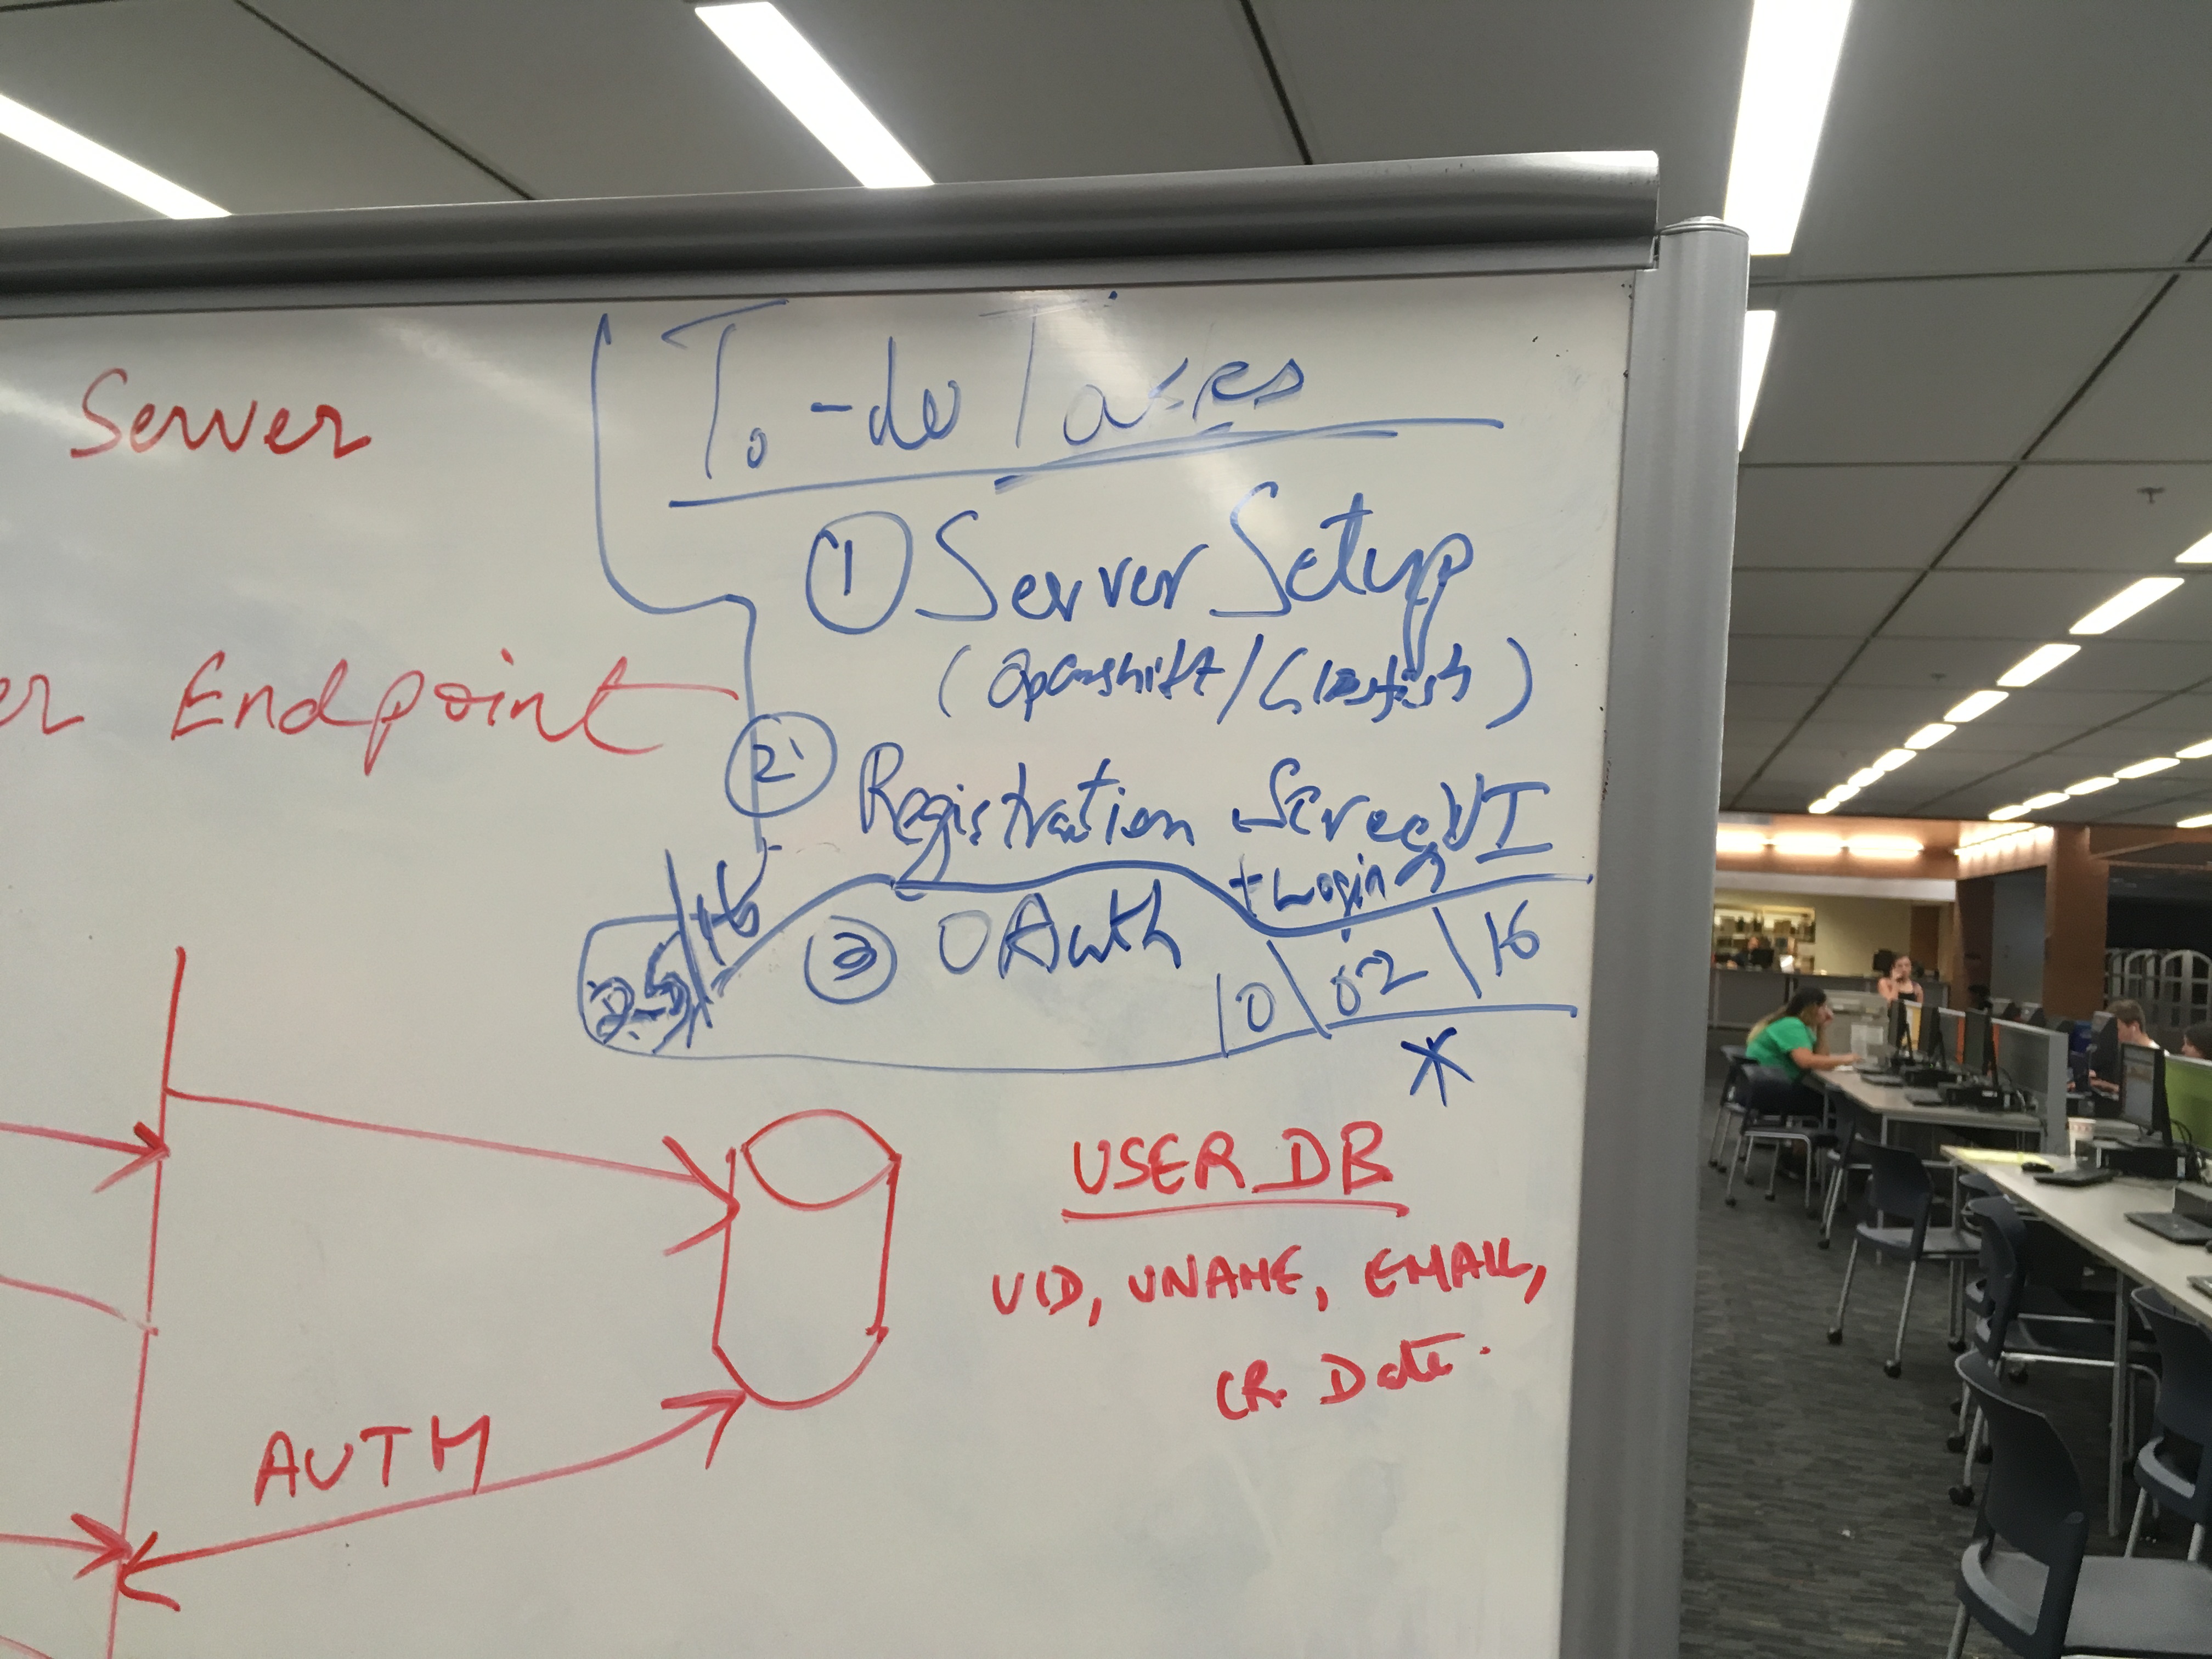 Server
er Endpoint
To-do Tasks
① Server Setup
(Openshift/Glassfish)
② Registration Screen UI
+ Login
③ OAuth
USER DB
UID, UNAME, EMAIL,
CR. Date.
AUTH